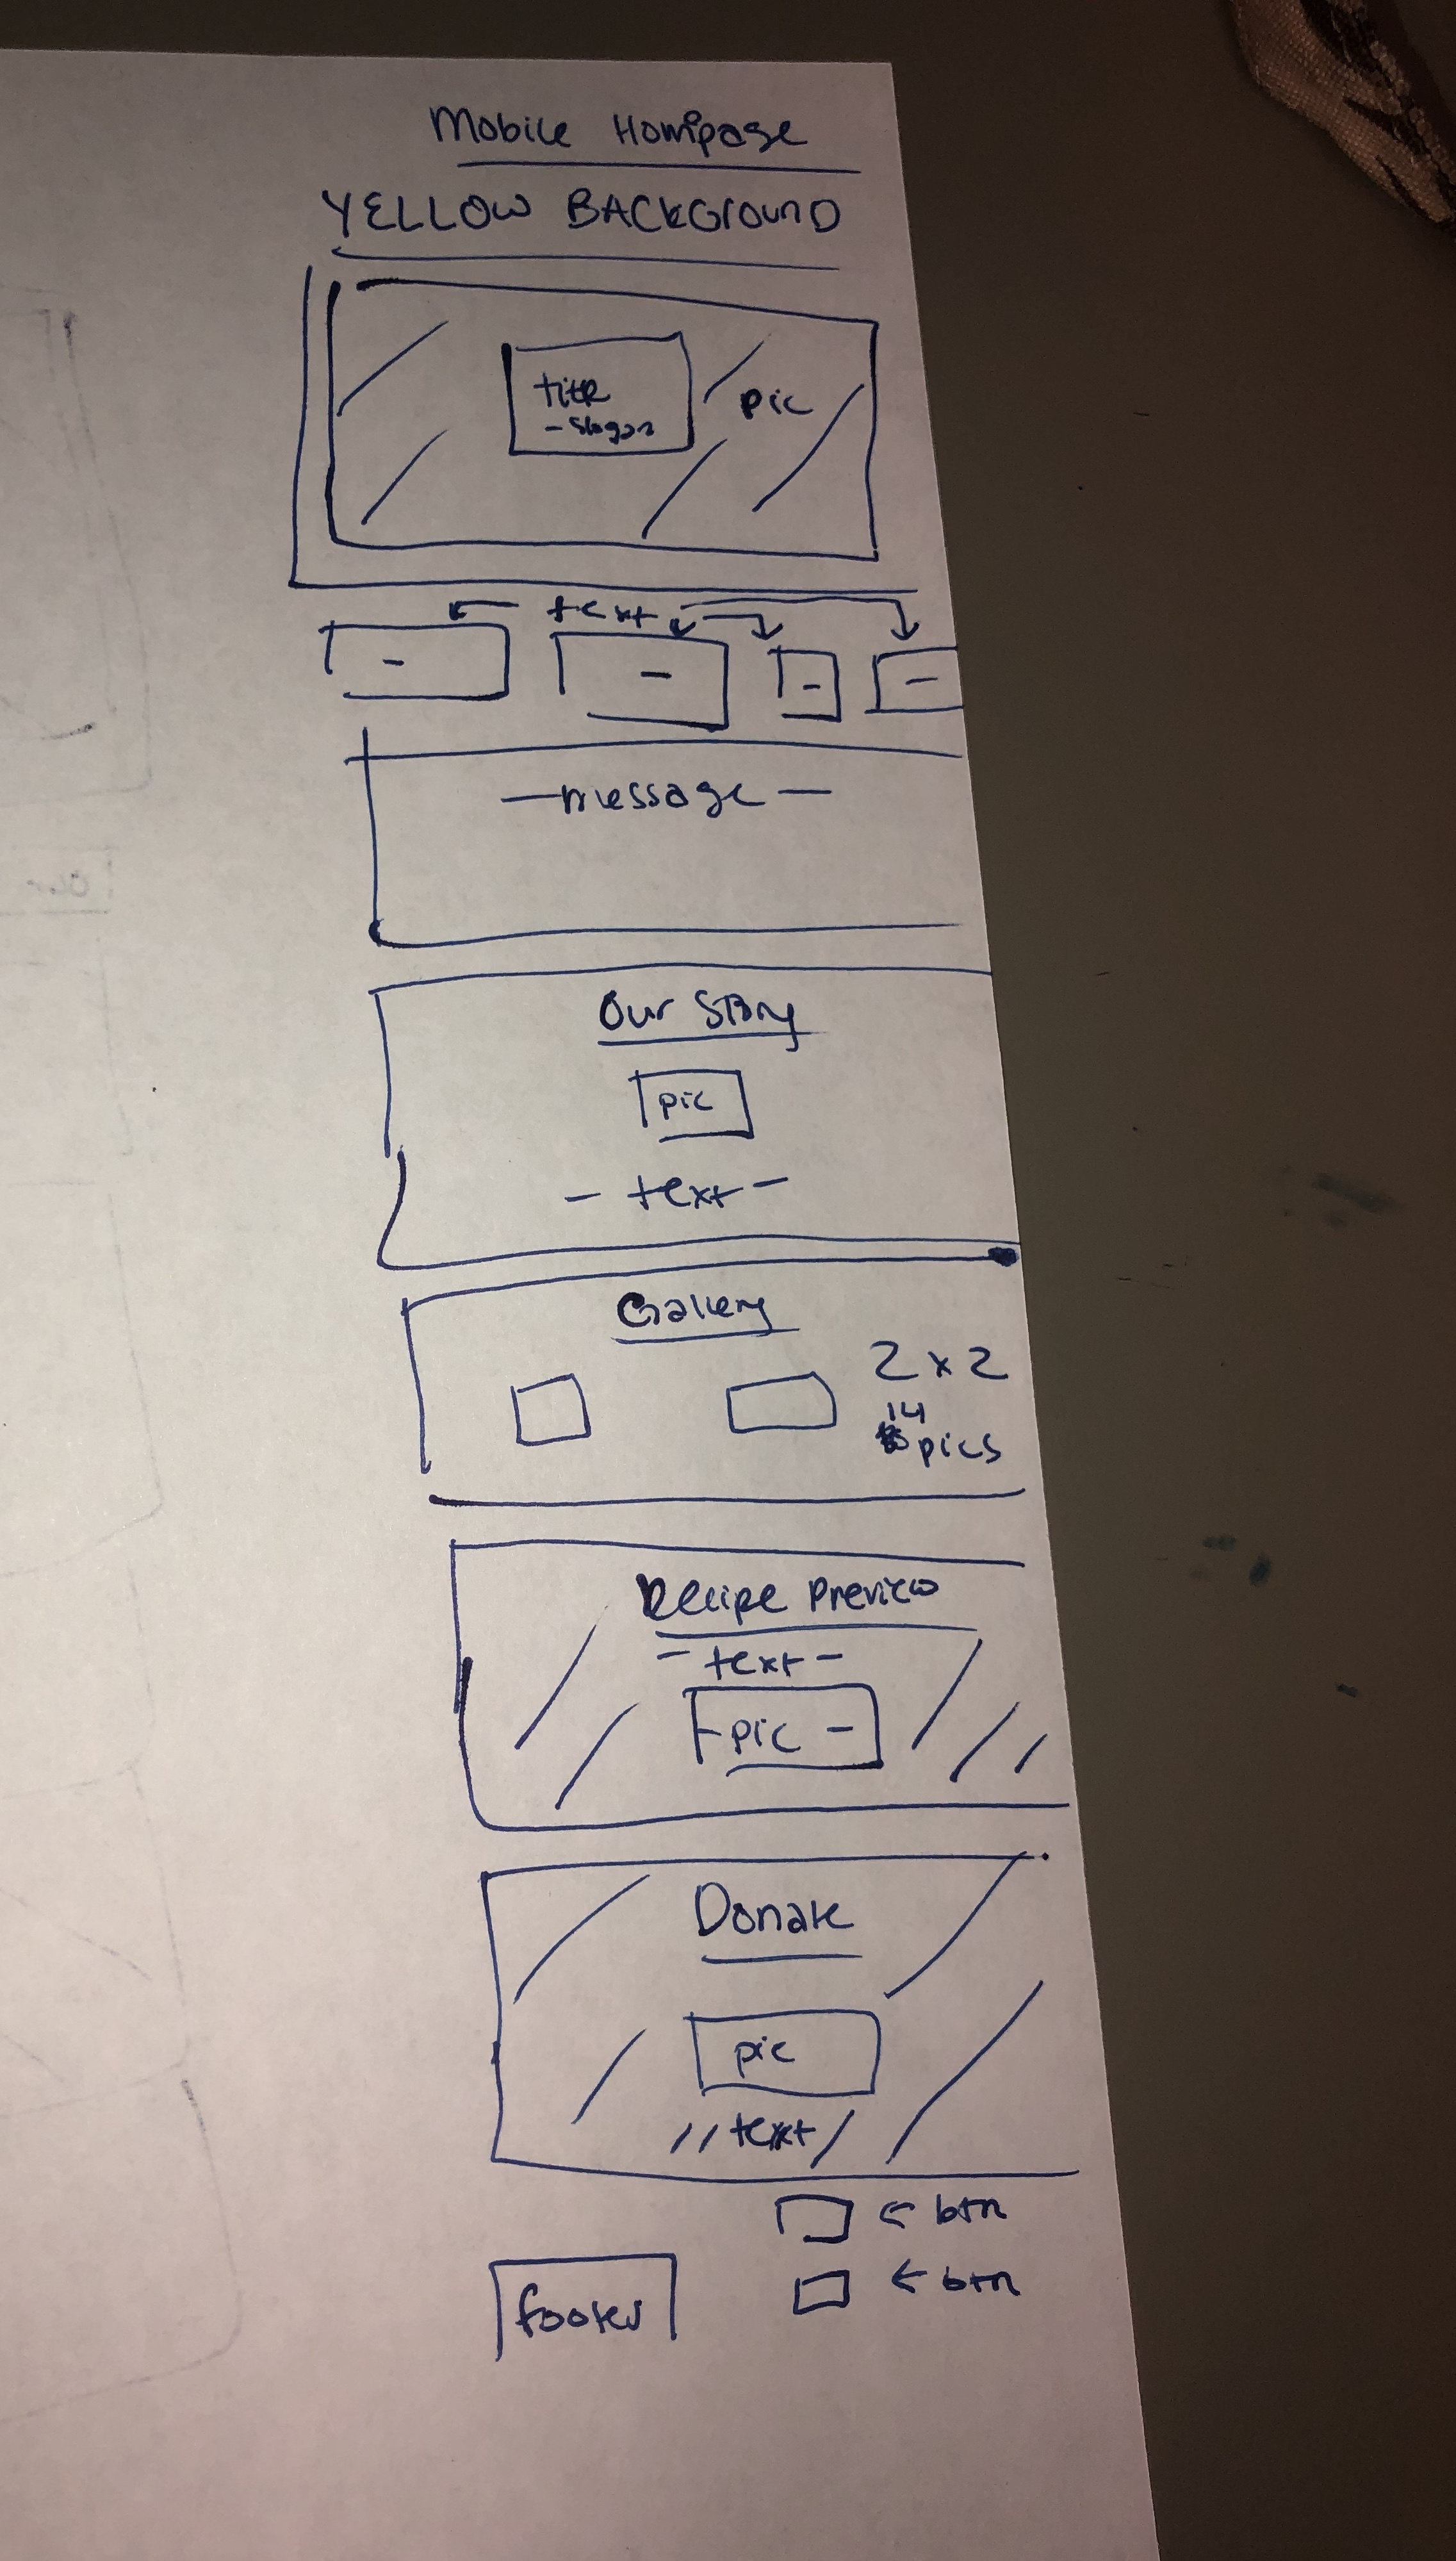 Mobile Homepage
YELLOW BACKGROUND
title
- slogan
pic
text
- message -
Our Story
pic
- text -
Gallery
2 x 2
14
pics
Recipe Preview
- text -
- pic -
Donate
pic
// text /
← btn
← btn
footer